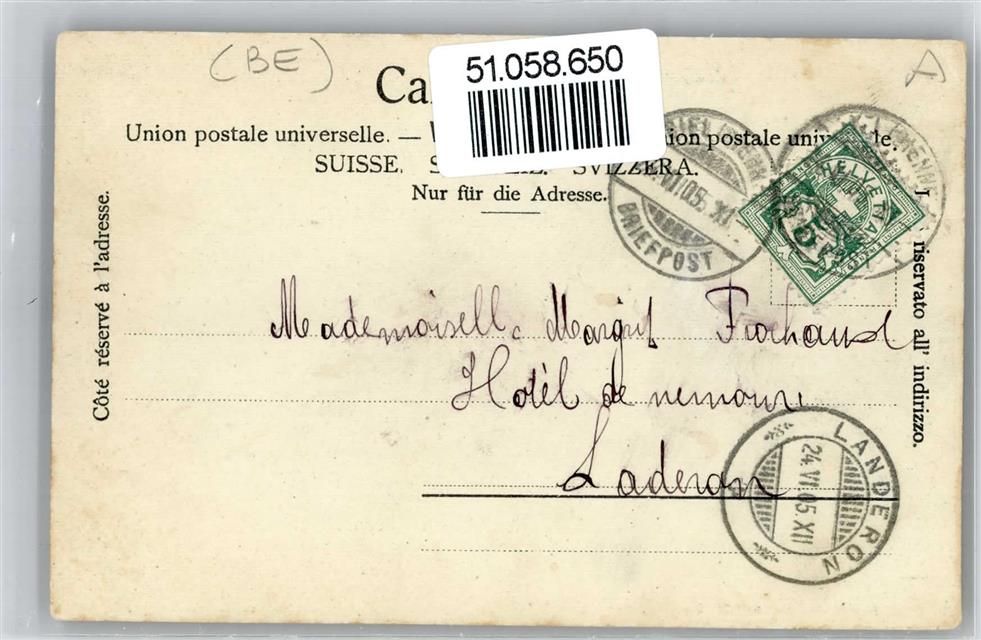 (BE)
A
51.058.650
Ca
Union postale universelle. — ion postale unive lle.
SUISSE. S SVIZZERA.
Nur für die Adresse.
Côté réservé à l'adresse.
riservato all' indirizzo.
HELVETIA
5
VI 05. XI
BRIEFPOST
Mademoiselle Margrit
Hotèl de nemours
Laderon
LANDERON
24.VI.05.XII